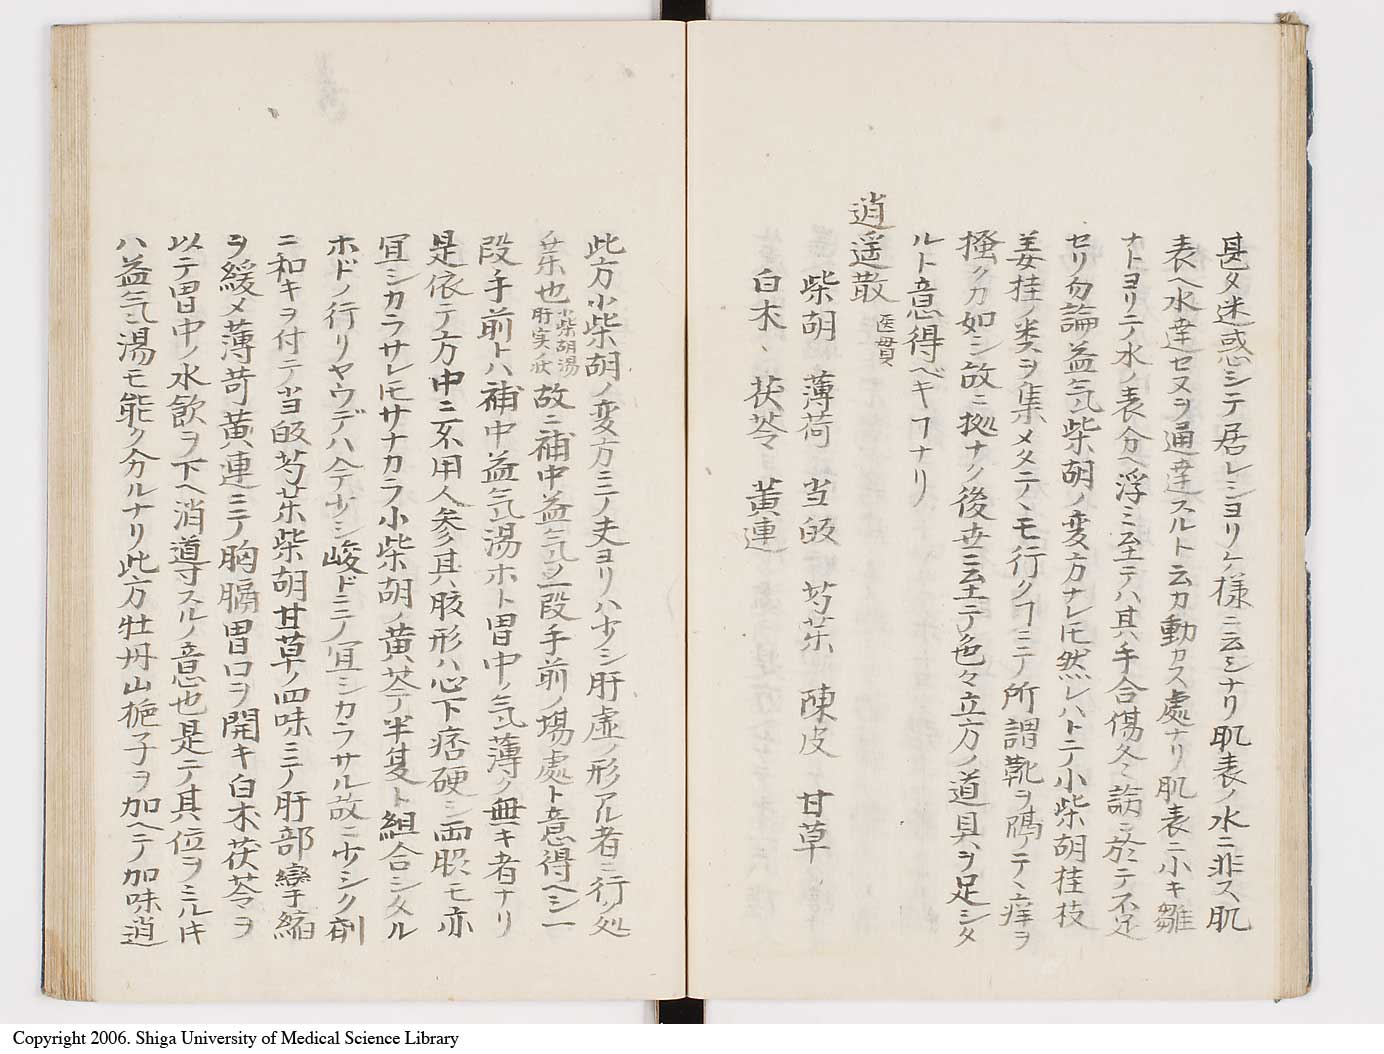 甚タ迷惑シテ居レシヨリケ様ニ云シナリ肌表ノ水ニ非ス肌
表ヘ水達セヌヲ通達スルト云カ動カス處ナリ肌表ニ小キ雛
ナトヨリニノ水ノ表分ヘ浮ミ至テハ其手合傷冬論ニ於テ不足
セリ勿論益気柴胡ノ変方ナレ𪜈然レハトテ小柴胡桂枝
姜桂ノ类ヲ集メタニテモ行クヿミニノ所謂靴ヲ隔テヽ痒ヲ
掻クカ如シ故ニ拠ナク後世ニ至テ色々立方ノ道具ヲ足シタ
ルト意得ベキヿナリ
逍遥散 医貫
柴胡 薄荷 当皈 芍薬 陳皮 甘草
白朮、茯苓 黄連
此方小柴胡ノ変方ニノ夫ヨリハ少シ肝虚ノ形アル者ニ行ク処
ノ薬也 小柴胡湯肝実ノ状 故ニ補中益気ヨリ一段手前ノ場處ト意得ヘシ一
段手前トハ補中益気湯ホト胃中ノ気薄ク無キ者ナリ
是依テ方中ニ不用人参其腹形ハ心下痞硬シ両脇モ亦
冝シカラサレ𪜈サナカラ小柴胡ノ黄芩半夏ト組合シタル
ホドノ行リヤウデハ今少シ峻ドニノ冝シカラサル故ニ少シク剤
ニ和キヲ付テ当皈芍薬柴胡甘草ノ四味ニノ肝部攣縮
ヲ緩メ薄荷黄連ニノ胸膈胃口ヲ開キ白朮茯苓ヲ
以テ胃中ノ水飲ヲ下ヘ消導スルノ意也是ニテ其位ヲミルキ
ハ益気湯モ能ク分ルナリ此方牡丹山梔子ヲ加ヘテ加味逍
Copyright 2006. Shiga University of Medical Science Library